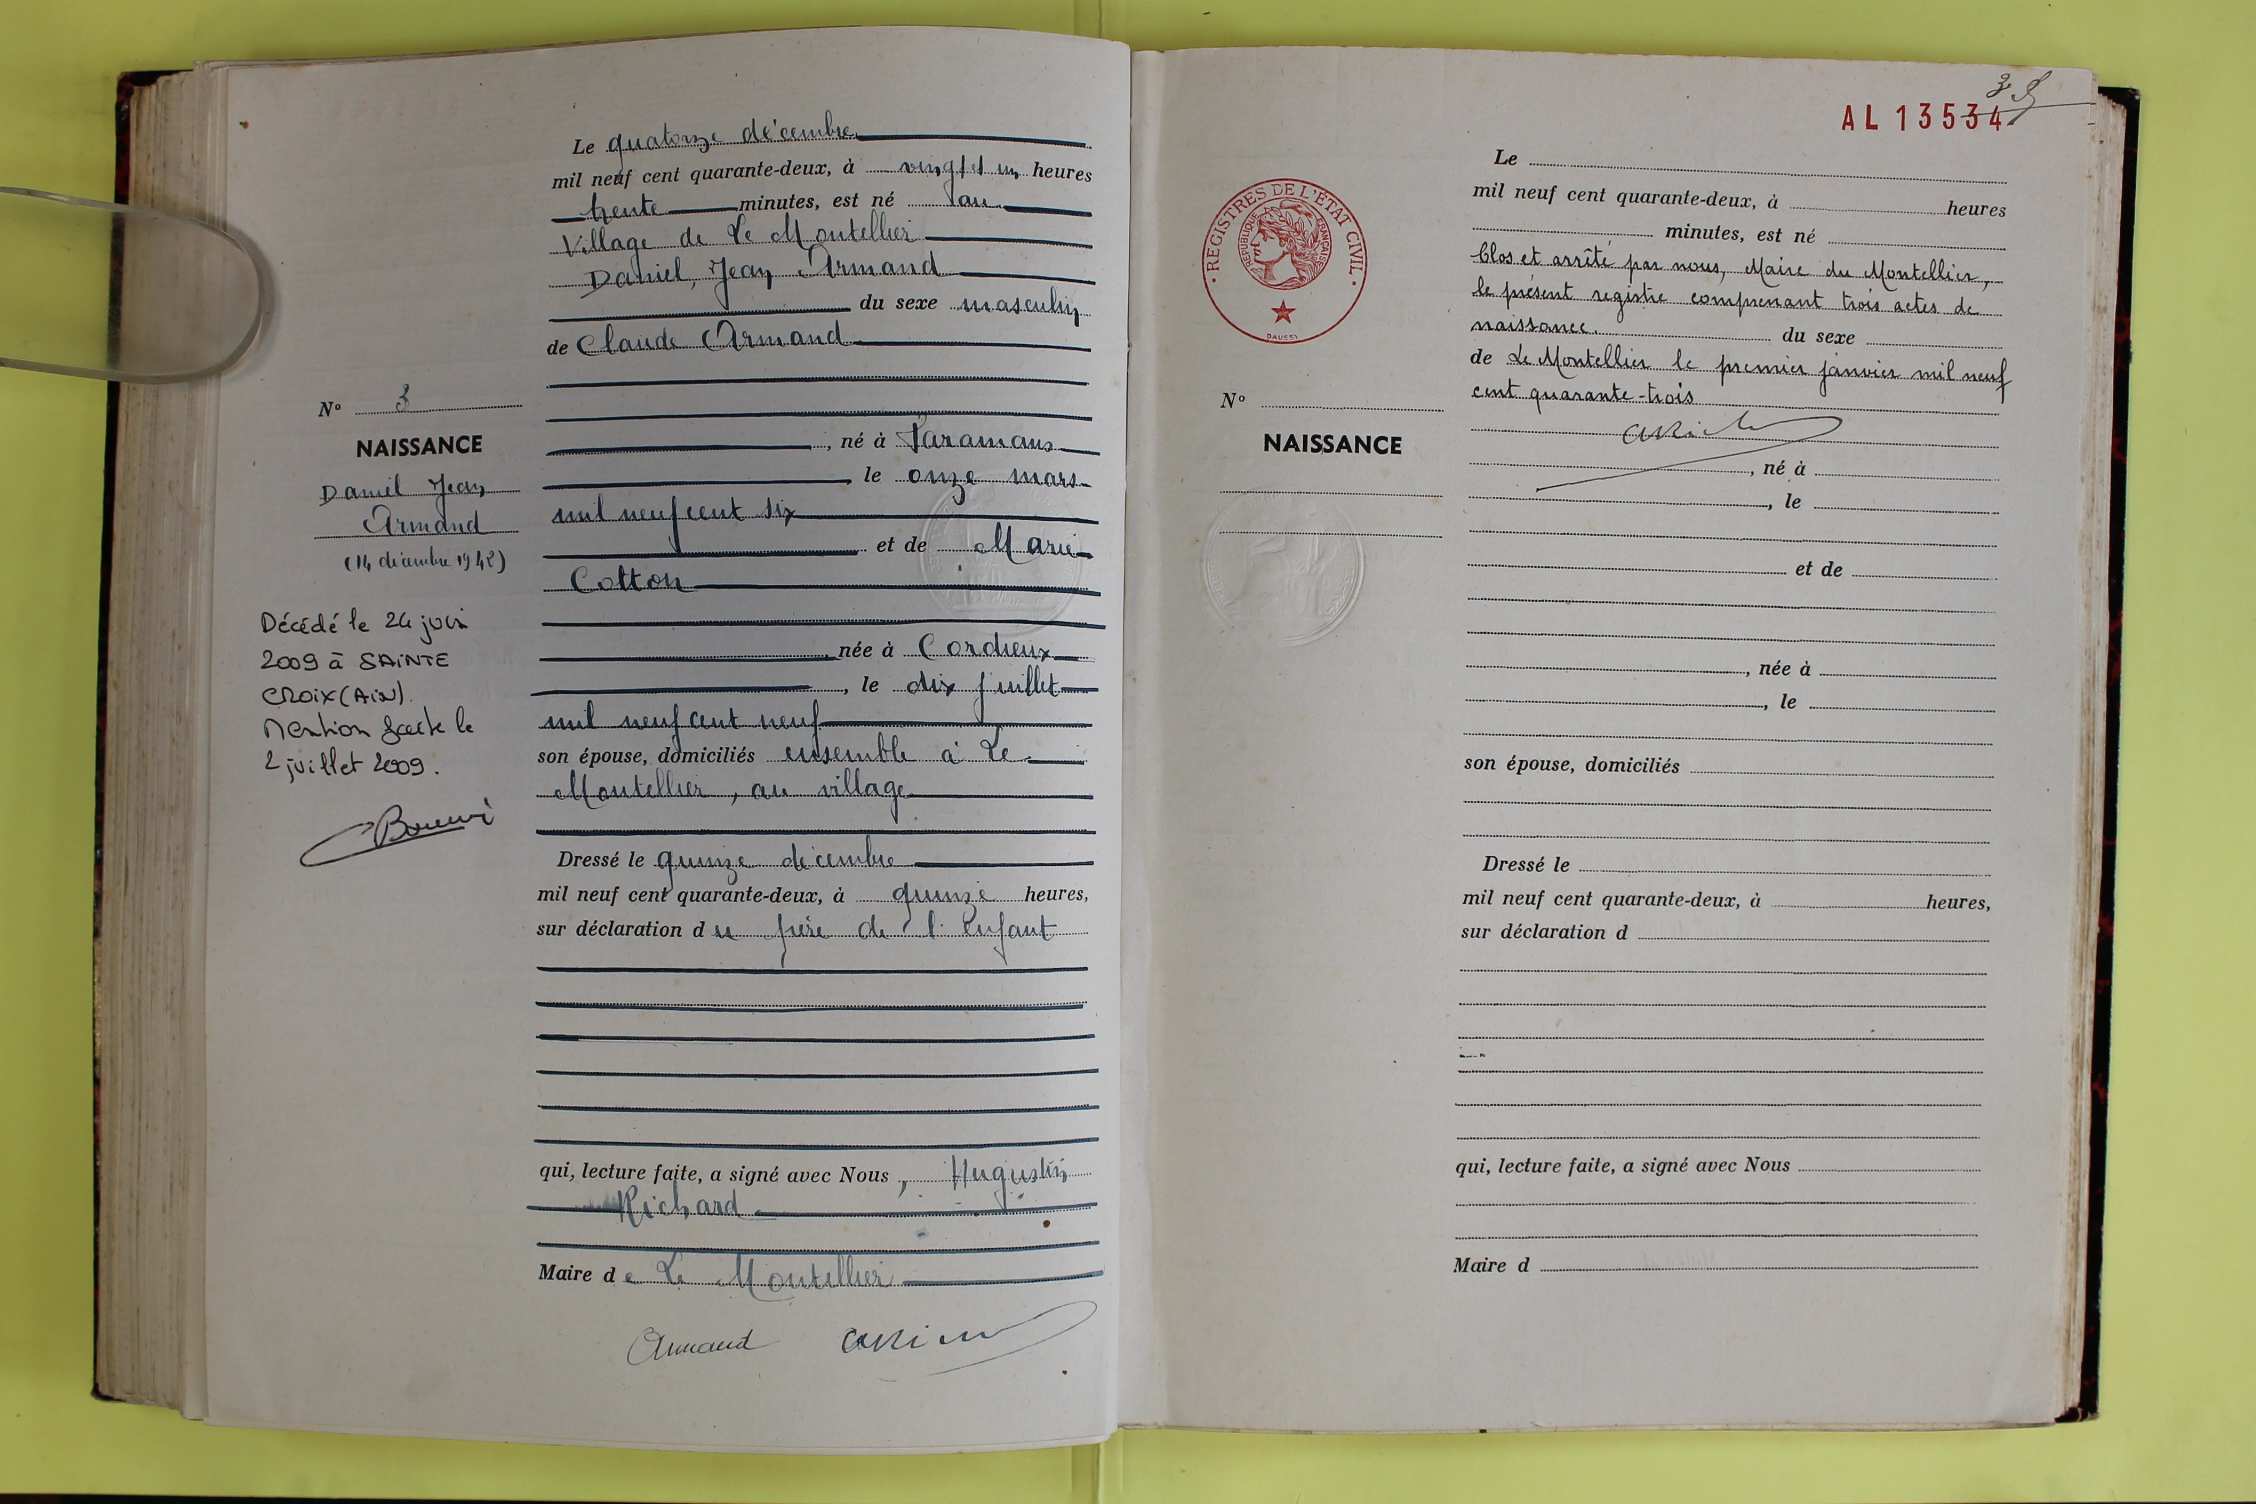 Le quatorze décembre
mil neuf cent quarante-deux, à vingt et un heures
trente minutes, est né au
Village de Le Montellier
Daniel, Jean Armand
du sexe masculin
de Claude Armand
, né à Faramans
, le onze mars
mil neuf cent six
et de Marie
Cotton
, née à Cordieux
, le dix juillet
mil neuf cent neuf
son épouse, domiciliés ensemble à Le
Montellier, au village
Dressé le quinze décembre
mil neuf cent quarante-deux, à quinze heures,
sur déclaration du père de l'enfant
qui, lecture faite, a signé avec Nous, Augustin
Richard
Maire de Le Montellier
Armand
N° 3
NAISSANCE
Daniel Jean
Armand
(14 décembre 1942)
Décédé le 24 juin
2009 à SAINTE
CROIX (AIN).
Mention faite le
2 juillet 2009.
AL 13534
35
REGISTRES DE L'ÉTAT CIVIL
RÉPUBLIQUE FRANÇAISE
Le
mil neuf cent quarante-deux, à heures
minutes, est né
Clos et arrêté par nous, Maire du Montellier,
le présent registre comprenant trois actes de
naissance. du sexe
de Le Montellier le premier janvier mil neuf
cent quarante-trois
, né à
, le
et de
, née à
, le
son épouse, domiciliés
Dressé le
mil neuf cent quarante-deux, à heures,
sur déclaration d
qui, lecture faite, a signé avec Nous
Maire d
N°
NAISSANCE